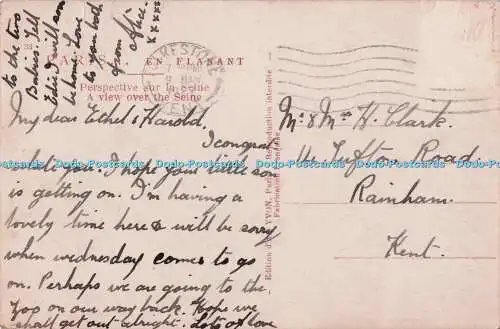 to the two
Babies Tell
Edie I will soon
be home. Love
to you both
from Alice.
xxxxx
PARIS... EN FLANANT
Perspective sur la Seine
A view over the Seine
FOLKESTONE
KENT
My dear Ethel & Harold.
I congrat
ulate you. I hope your little son
is getting on. I'm having a
lovely time here & will be sorry
when wednesday comes to go
on. Perhaps we are going to the
Zoo on our way back. Hope we
shall get out alright. Lots of love
Mr & Mrs H. Clark.
Tufton Road.
Rainham.
Kent.
Edition d'Art YVON, Paris
Reproduction interdite
Fabrication Française
Dodo-Postcards Dodo-Postcards Dodo-Postcards Dodo-Postcards Dodo-Postcards Dodo-Postcards